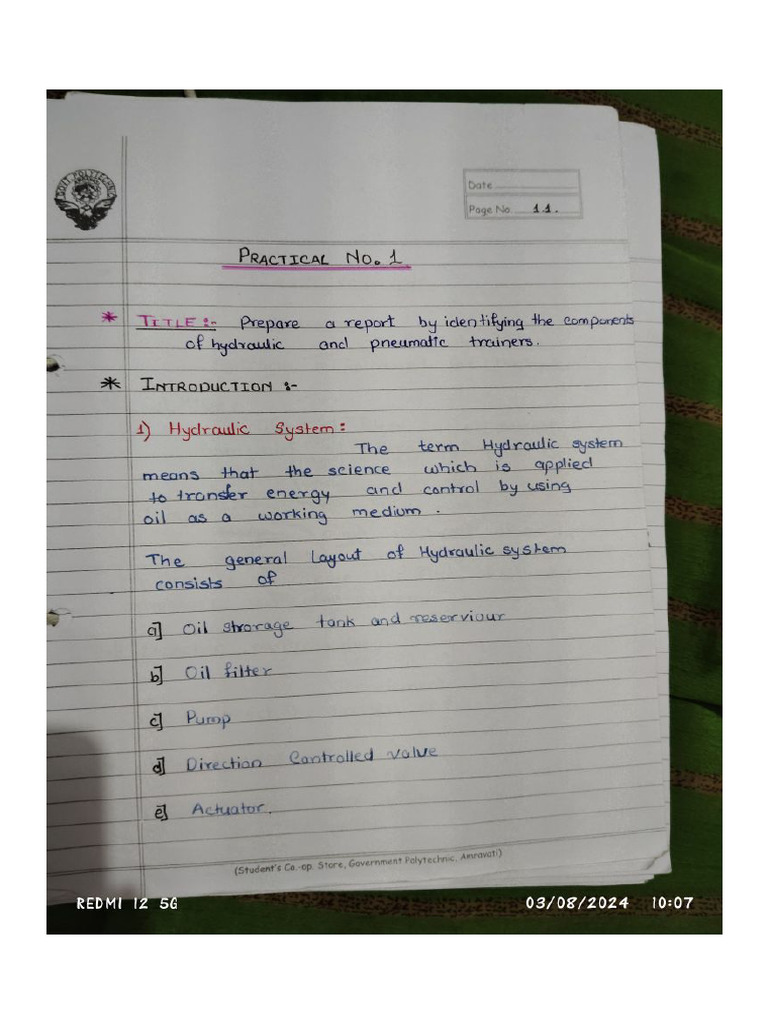 GOVT. POLYTECHNIC
Date
Page No. 1.1.
PRACTICAL No. 1
* TITLE :- Prepare a report by identifying the components
of hydraulic and pneumatic trainers.
* INTRODUCTION :-
1) Hydraulic System :
The term Hydraulic system
means that the science which is applied
to transfer energy and control by using
oil as a working medium.
The general layout of Hydraulic system
consists of
a] Oil strorage tank and reserviour
b] Oil filter
c] Pump
d] Direction Controlled valve
e] Actuator.
(Student's Co.-op. Store, Government Polytechnic, Amravati)
REDMI 12 5G
03/08/2024 10:07